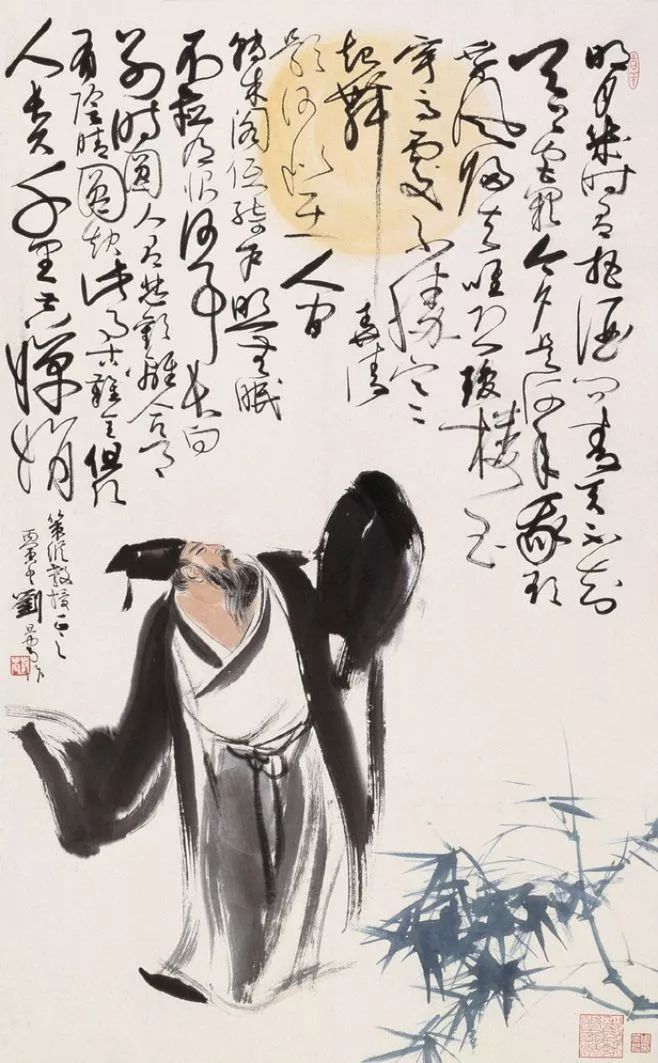 明月幾時有把酒問青天不知
天上宮闕今夕是何年我欲
乘風歸去唯恐瓊樓玉
宇高處不勝寒
起舞弄清
影何似在人间
轉朱閣低綺戶照無眠
不應有恨何事長向
别時圓人有悲歡離合月
有陰晴圓缺此事古難全但願
人長久千里共嬋娟
策縱教授正之
丙寅 劉旦宅